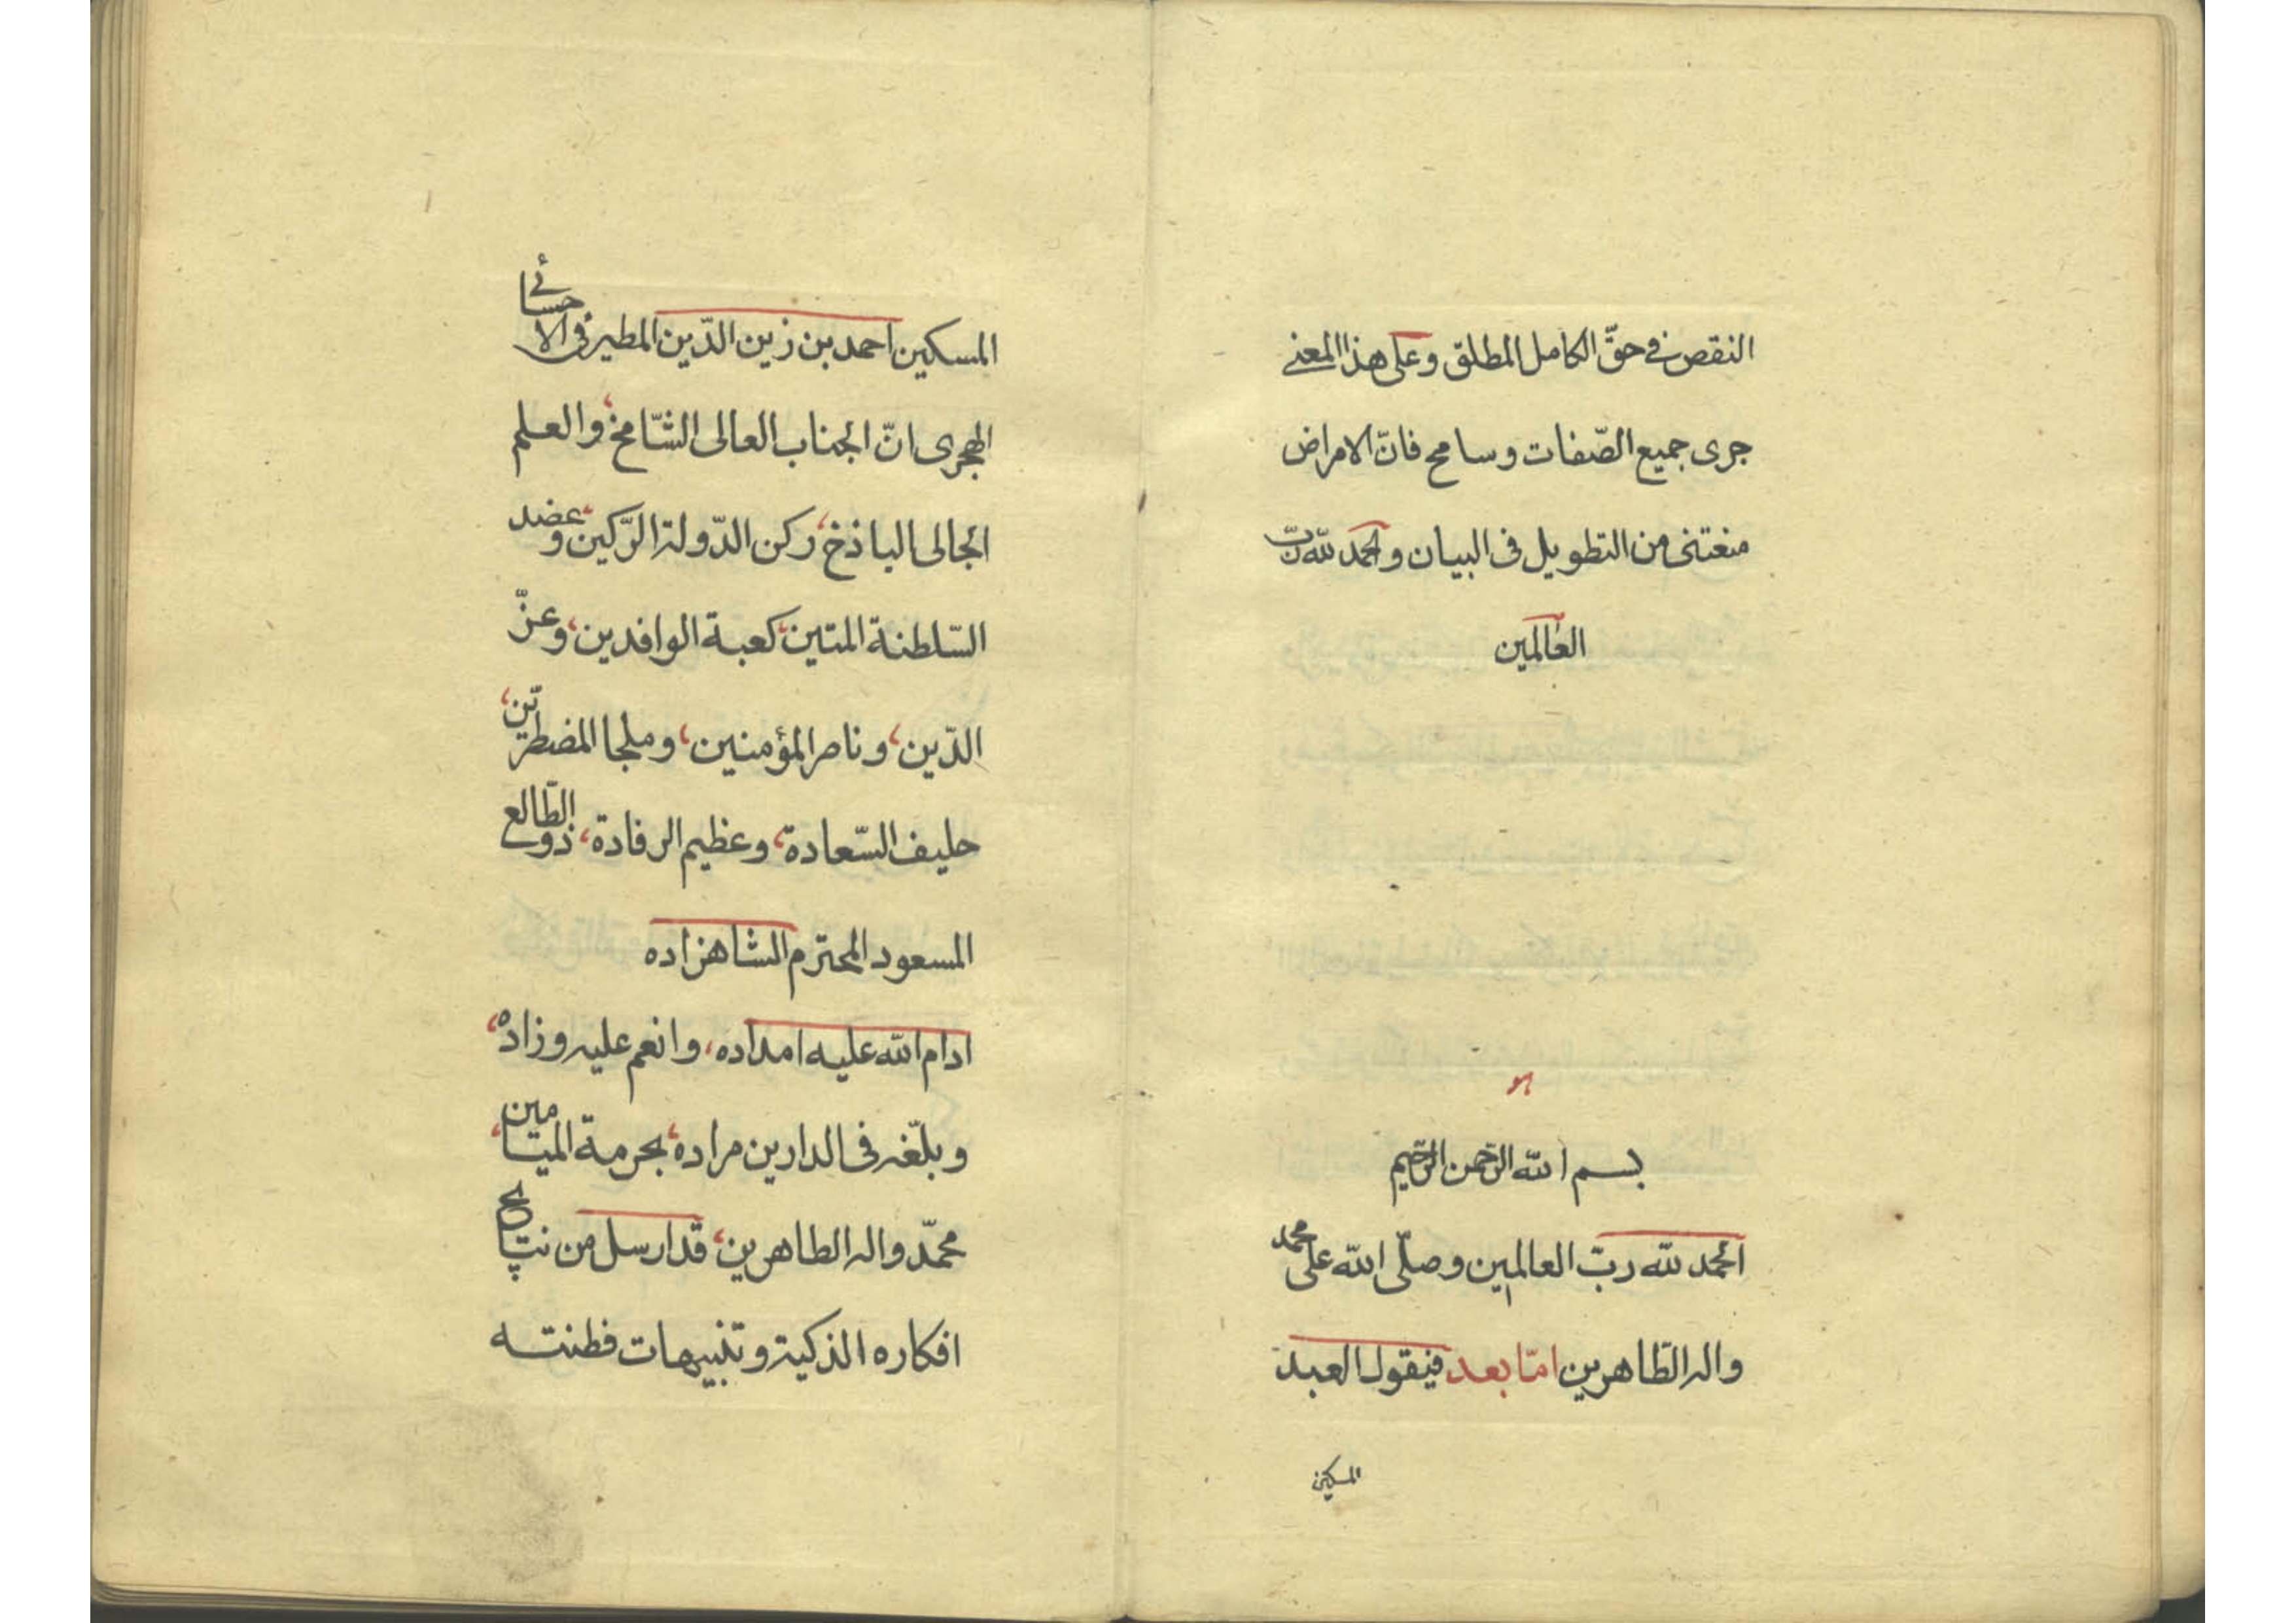 النقص في حقّ الكامل المطلق وعلى هذا المعنى
جرى جميع الصّفات وسامح فانّ الامراض
منعتنى من التطويل فى البيان والحمد للّه ربّ
العالمين
بسم اللّه الرّحمن الرّحيم
الحمد للّه ربّ العالمين وصلّى اللّه على محمد
واله الطّاهرين امّا بعد فيقول العبد
المسكين
المسكين احمد بن زين الدّين المطيرفى الاحسائى
الهجرى انّ الجناب العالى الشّامخ، والعلم
الجالى الباذخ، ركن الدّولة الرّكين، وعضد
السّلطنة المتين، كعبة الوافدين، وعزّ
الدّين، وناصر المؤمنين، وملجا المضطرّين،
حليف السّعادة، وعظيم الرفادة، ذوى الطّالع
المسعود المحترم الشاهزاده
ادام اللّه عليه امداده، وانعم عليه وزاده،
وبلّغه فى الدارين مراده، بحرمة الميامين،
محمّد واله الطاهرين، قد ارسل من نتايج
افكاره الذكية وتنبيهات فطنته